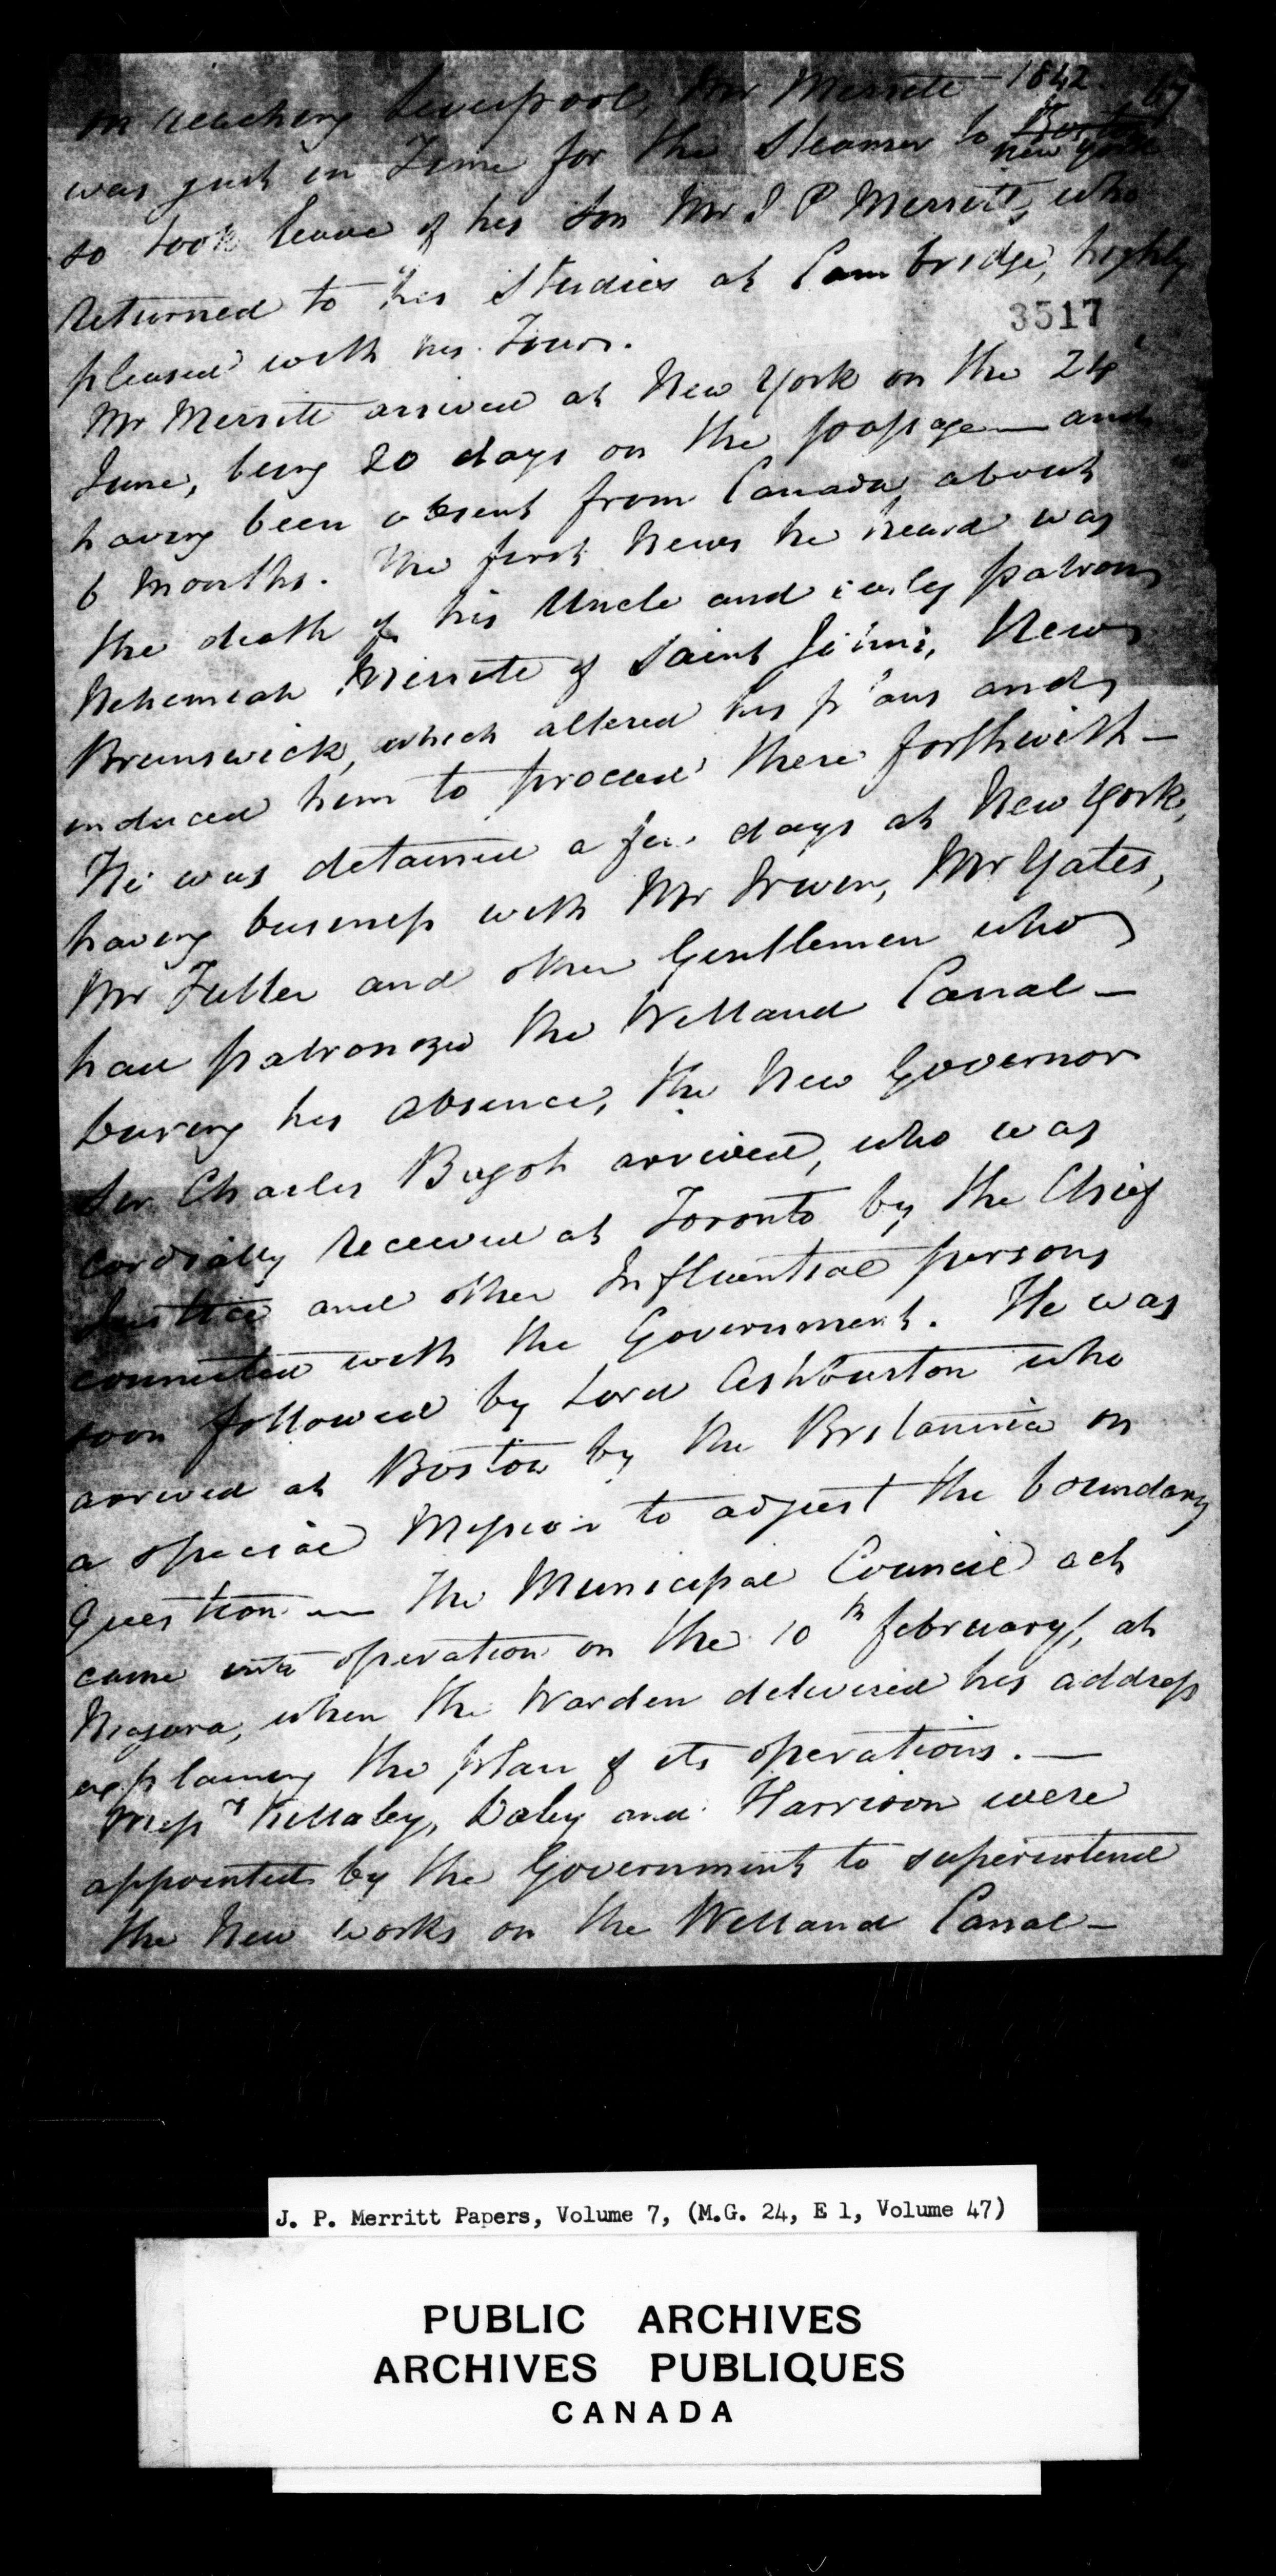 1842
on reaching Liverpool, Mr Merritt
was just in Time for the Steamer to Boston New York
so took leave of his son Mr J P Merritt, who
returned to his Studies at Cambridge, highly
3517
pleased with his Tour.
Mr Merritt arrived at New York on the 24
June, being 20 days on the passage — and
having been absent from Canada about
6 Months. The first News he heard was
the death of his Uncle and early patron
Nehemiah Merritt of Saint Johns, New
Brunswick, which altered his plans and
induced him to proceed there forthwith —
He was detained a few days at New York,
having business with Mr Irwin, Mr Yates,
Mr Fuller and other Gentlemen who
had patronized the Welland Canal —
During his absence, the New Governor
Sir Charles Bagot arrived, who was
cordially received at Toronto by the Chief
Justice and other Influential persons
connected with the Government. He was
soon followed by Lord Ashburton who
arrived at Boston by the Britannia on
a special Mission to adjust the boundary
Question — The Municipal Council act
came into operation on the 10th February, at
Niagara, when the Warden delivered his address
explaining the plan of its operations. —
Messrs Killaly, Daly and Harrison were
appointed by the Government to superintend
the New works on the Welland Canal —
J. P. Merritt Papers, Volume 7, (M.G. 24, E 1, Volume 47)
PUBLIC ARCHIVES
ARCHIVES PUBLIQUES
CANADA